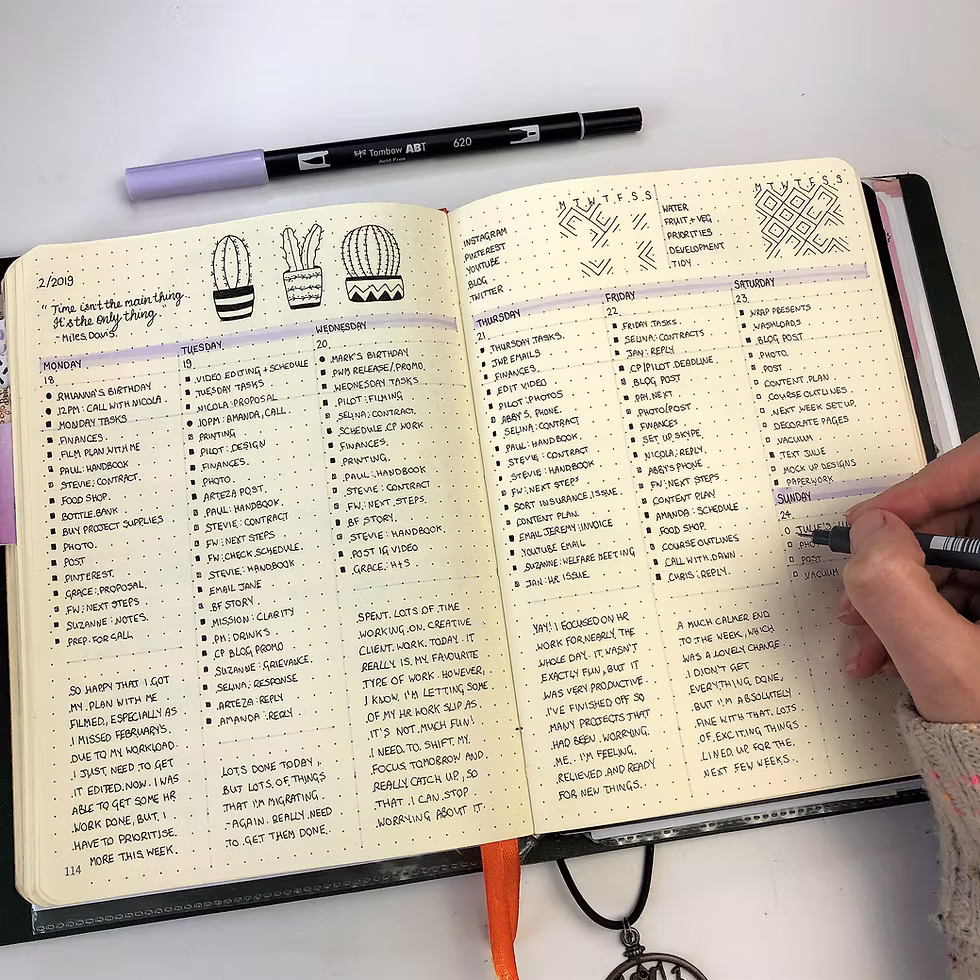 Tombow ABT
620
Acid Free
2/2019
"Time isn't the main thing.
It's the only thing."
- Miles Davis.
MONDAY
18.
RHIANNA'S BIRTHDAY
12PM: CALL WITH NICOLA.
MONDAY TASKS
FINANCES.
FILM PLAN WITH ME
PAUL: HANDBOOK
STEVIE: CONTRACT.
FOOD SHOP.
BOTTLE BANK
BUY PROJECT SUPPLIES
PHOTO.
POST
PINTEREST.
GRACE: PROPOSAL.
FW: NEXT STEPS
SUZANNE: NOTES.
PREP FOR CALL
SO HAPPY THAT I GOT
MY PLAN WITH ME
FILMED, ESPECIALLY AS
I MISSED FEBRUARY'S.
DUE TO MY WORKLOAD.
I JUST NEED TO GET
IT EDITED NOW. I WAS
ABLE TO GET SOME HR
WORK DONE, BUT I
HAVE TO PRIORITISE
MORE THIS WEEK.
114
TUESDAY
19
VIDEO EDITING + SCHEDULE
TUESDAY TASKS
NICOLA: PROPOSAL
10PM: AMANDA, CALL.
PRINTING
PILOT: DESIGN
FINANCES.
PHOTO.
ARTEZA POST.
PAUL: HANDBOOK.
STEVIE: CONTRACT
FW: NEXT STEPS
FW: CHECK SCHEDULE.
STEVIE: HANDBOOK
EMAIL JANE
BF STORY.
MISSION: CLARITY
PM: DRINKS
CP BLOG PROMO
SUZANNE: GRIEVANCE.
SELINA: RESPONSE
ARTEZA: REPLY
AMANDA: REPLY
LOTS DONE TODAY,
BUT LOTS OF THINGS
THAT I'M MIGRATING
AGAIN. REALLY NEED
TO GET THEM DONE.
WEDNESDAY
20.
MARK'S BIRTHDAY
PWM RELEASE/PROMO.
WEDNESDAY TASKS
PILOT: FILMING
SELINA: CONTRACT.
SCHEDULE CP WORK
FINANCES.
PRINTING.
PAUL: HANDBOOK
STEVIE: CONTRACT
FW: NEXT STEPS.
BF STORY.
STEVIE: HANDBOOK.
POST IG VIDEO
GRACE: H+S
SPENT LOTS OF TIME
WORKING ON CREATIVE
CLIENT WORK TODAY. IT
REALLY IS MY FAVOURITE
TYPE OF WORK. HOWEVER,
I KNOW I'M LETTING SOME
OF MY HR WORK SLIP AS
IT'S NOT MUCH FUN!
I NEED TO SHIFT MY
FOCUS TOMORROW AND
REALLY CATCH UP, SO
THAT I CAN STOP
WORRYING ABOUT IT.
INSTAGRAM
PINTEREST
YOUTUBE
BLOG
TWITTER
M T W T F S S
WATER
FRUIT + VEG
PRIORITIES
DEVELOPMENT
TIDY
M T W T F S S
THURSDAY
21.
THURSDAY TASKS.
JWP EMAILS
FINANCES.
EDIT VIDEO
PILOT: PHOTOS
ABBY'S PHONE.
SELINA: CONTRACT
PAUL: HANDBOOK.
STEVIE: CONTRACT
STEVIE: HANDBOOK.
FW: NEXT STEPS
SORT INSURANCE ISSUE.
CONTENT PLAN.
EMAIL JEREMY: INVOICE
YOUTUBE EMAIL
SUZANNE: WELFARE MEETING
JAN: HR ISSUE.
YAY! I FOCUSED ON HR
WORK FOR NEARLY THE
WHOLE DAY. IT WASN'T
EXACTLY FUN, BUT IT
WAS VERY PRODUCTIVE.
I'VE FINISHED OFF SO
MANY PROJECTS THAT
HAD BEEN WORRYING
ME. I'M FEELING
RELIEVED AND READY
FOR NEW THINGS.
FRIDAY
22
FRIDAY TASKS.
SELINA: CONTRACTS
JAN: REPLY
CP/PILOT DEADLINE
BLOG POST
PH NEXT
PHOTO/POST
FINANCES
SET UP SKYPE
NICOLA: REPLY.
ABBY'S PHONE
FW: NEXT STEPS
CONTENT PLAN
AMANDA: SCHEDULE
FOOD SHOP.
COURSE OUTLINES
CALL WITH DAWN
CHRIS: REPLY.
A MUCH CALMER END
TO THE WEEK, WHICH
WAS A LOVELY CHANGE
I DIDN'T GET
EVERYTHING DONE,
BUT I'M ABSOLUTELY
FINE WITH THAT. LOTS
OF EXCITING THINGS
LINED UP FOR THE
NEXT FEW WEEKS.
SATURDAY
23
WRAP PRESENTS
WASHLOADS
BLOG POST
PHOTO.
POST
CONTENT PLAN
COURSE OUTLINES.
NEXT WEEK SET UP.
DECORATE PAGES
VACUUM
TEXT JULIE
MOCK UP DESIGNS
PAPERWORK
SUNDAY
24
JULIE'S
POST
VACUUM